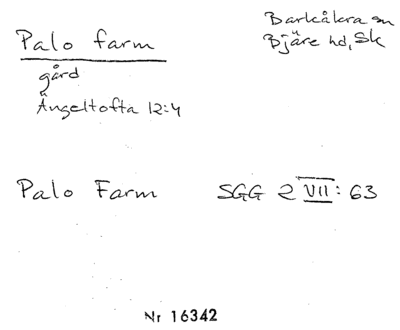 Palo farm
gård
Ängeltofta 12:4
Barkåkra sn
Bjäre hd, Sk
Palo Farm SGG 2 VII: 63
Nr 16342